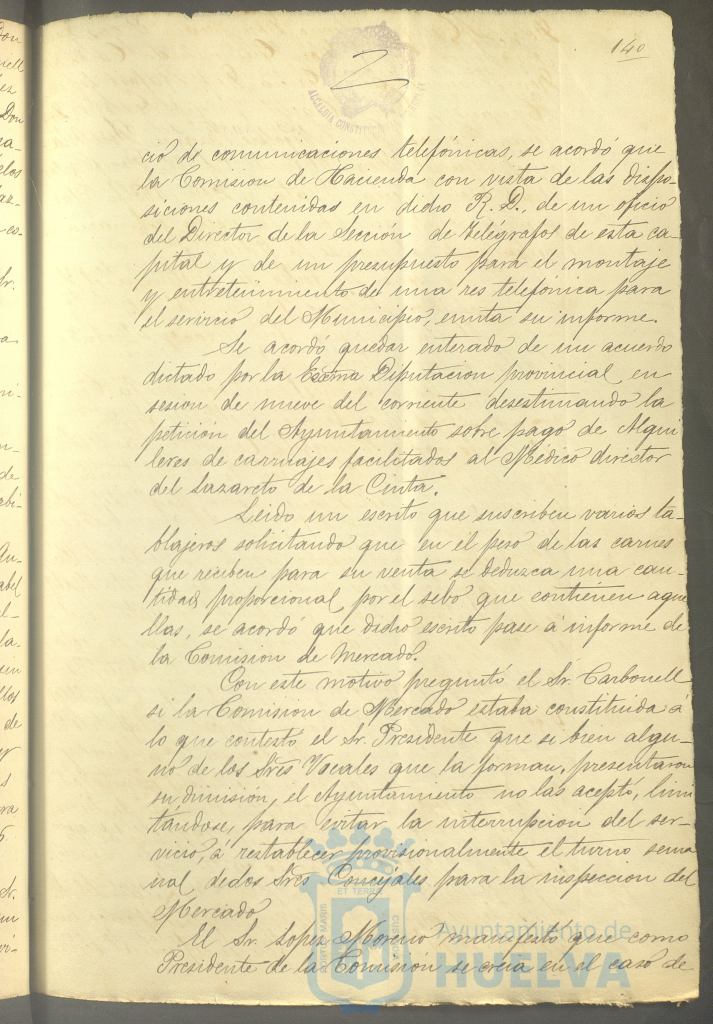 140
ALCALDIA CONSTITUCIONAL
cio de comunicaciones telefónicas, se acordó que
la Comision de Hacienda con vista de las dispo-
siciones contenidas en dicho R. D., de un oficio
del Director de la Sección de telégrafos de esta ca-
pital y de un presupuesto para el montaje
y entretenimiento de una res telefónica para
el servicio del Municipio, emita su informe.
Se acordó quedar enterado de un acuerdo
dictado por la Excma Diputacion provincial en
sesion de nueve del corriente desestimando la
petición del Ayuntamiento sobre pago de Alqui
leres de carruajes facilitados al Médico director
del Lazareto de la Cinta.
Leido un escrito que suscriben varios ta-
blajeros solicitando que en el peso de las carnes
que reciben para su venta se deduzca una can-
tidad proporcional por el sebo que contienen aque
llas, se acordó que dicho escrito pase á informe de
la Comision de Mercado.
Con este motivo preguntó el Sr. Carbonell
si la Comision de Mercado estaba constituida á
lo que contestó el Sr. Presidente que si bien algu-
no de los Sres Vocales que la forman, presentaron
su dimisión, el Ayuntamiento no las aceptó, limi
tandose, para evitar la interrupcion del ser-
vicio, á restablecer provisionalmente el turno sema
nal de dos Sres Concejales para la inspeccion del
Mercado
El Sr. Lopez Moreno manifestó que como
Presidente de la Comisión se creia en el caso de
PORTUS MARIS ET TERRE CUSTODIA
Ayuntamiento de
HUELVA